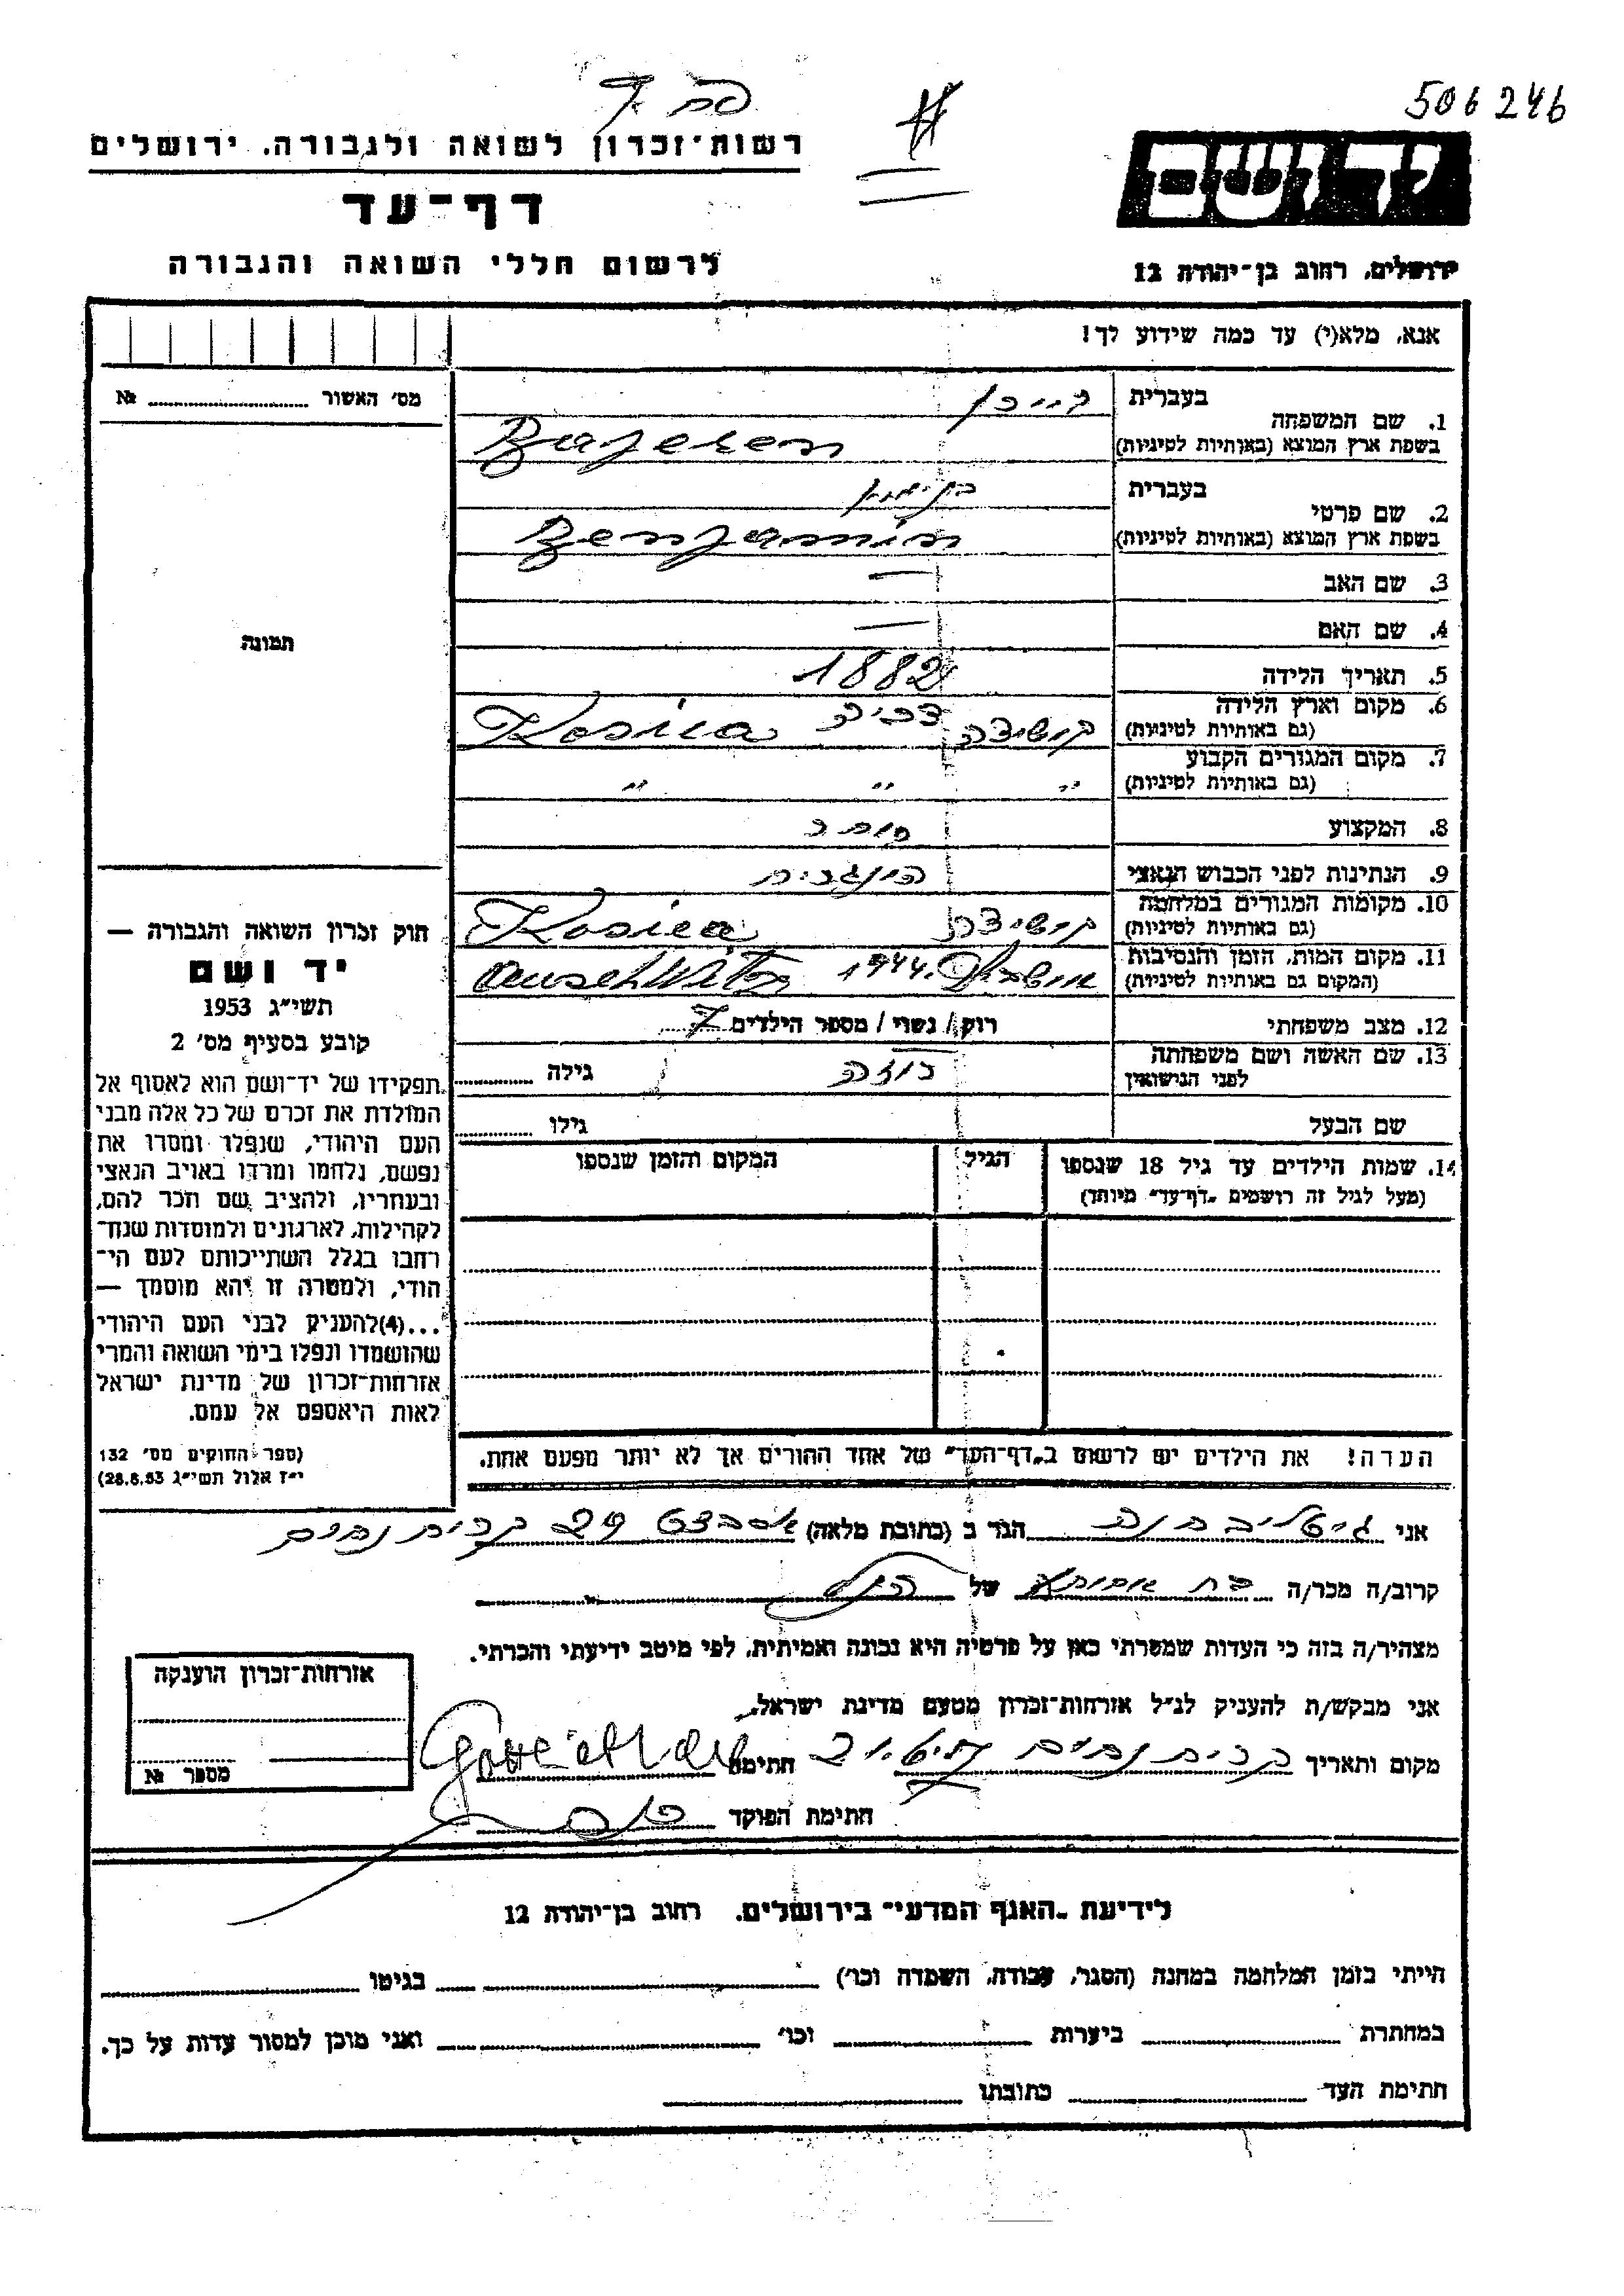 506246
רשות־זכרון לשואה ולגבורה, ירושלים
דף־עד
לרשום חללי השואה והגבורה
יד ושם
ירושלים, רחוב בן־יהודה 12
אנא, מלא(י) עד כמה שידוע לך!
מס' האשור № 
1. שם המשפחה
בעברית
בשפת ארץ המוצא (באותיות לטיניות)
2. שם פרטי
בעברית בנימין
בשפת ארץ המוצא (באותיות לטיניות) Benjamin
3. שם האב —
4. שם האם —
5. תאריך הלידה 1882
6. מקום וארץ הלידה
(גם באותיות לטיניות) קושיצה Kosica
7. מקום המגורים הקבוע
(גם באותיות לטיניות) " " "
8. המקצוע סוחר
9. הנתינות לפני הכבוש הנאצי הונגרית
10. מקומות המגורים במלחמה
(גם באותיות לטיניות) קושיצה Kosica
11. מקום המות, הזמן והנסיבות
(המקום גם באותיות לטיניות) אושביץ 1944. Auschwitz
12. מצב משפחתי רוק / נשוי / מספר הילדים 7
13. שם האשה ושם משפחתה
לפני הנישואין רוזה גילה
שם הבעל גילו
14. שמות הילדים עד גיל 18 שנספו
(מעל לגיל זה רושמים „דף־עד" מיוחד)
הגיל
המקום והזמן שנספו
הערה! את הילדים יש לרשום ב„דף־העד" של אחד ההורים אך לא יותר מפעם אחת.
תמונה
חוק זכרון השואה והגבורה —
יד ושם
תשי"ג 1953
קובע בסעיף מס' 2
תפקידו של יד־ושם הוא לאסוף אל
המולדת את זכרם של כל אלה מבני
העם היהודי, שנפלו ומסרו את
נפשם, נלחמו ומרדו באויב הנאצי
ובעוזריו, ולהציב שם וזכר להם,
לקהילות, לארגונים ולמוסדות שנח־
רחבו בגלל השתייכותם לעם הי־
הודי, ולמטרה זו יהא מוסמך —
...(4)להעניק לבני העם היהודי
שהושמדו ונפלו בימי השואה והמרי
אזרחות־זכרון של מדינת ישראל
לאות היאספם אל עמם.
(ספר החוקים מס' 132
י"ז אלול תשי"ג 28.8.53)
אני גוטליב חנה הגר ב (כתובת מלאה) 29 קרית נחום
קרוב/ה מכר/ה בת אחותו של הנ"ל
מצהיר/ה בזה כי העדות שמסרתי כאן על פרטיה היא נכונה ואמיתית, לפי מיטב ידיעתי והכרתי.
אני מבקש/ת להעניק לנ"ל אזרחות־זכרון מטעם מדינת ישראל.
מקום ותאריך קרית נחום חתימה
חתימת הפוקד
אזרחות־זכרון הוענקה
מספר №
לידיעת „האגף המדעי" בירושלים, רחוב בן־יהודה 12
הייתי בזמן המלחמה במחנה (הסגר, עבודה, השמדה וכו') בגיטו
במחתרת ביערות וכו' ואני מוכן למסור עדות על כך.
חתימת העד כתובתו